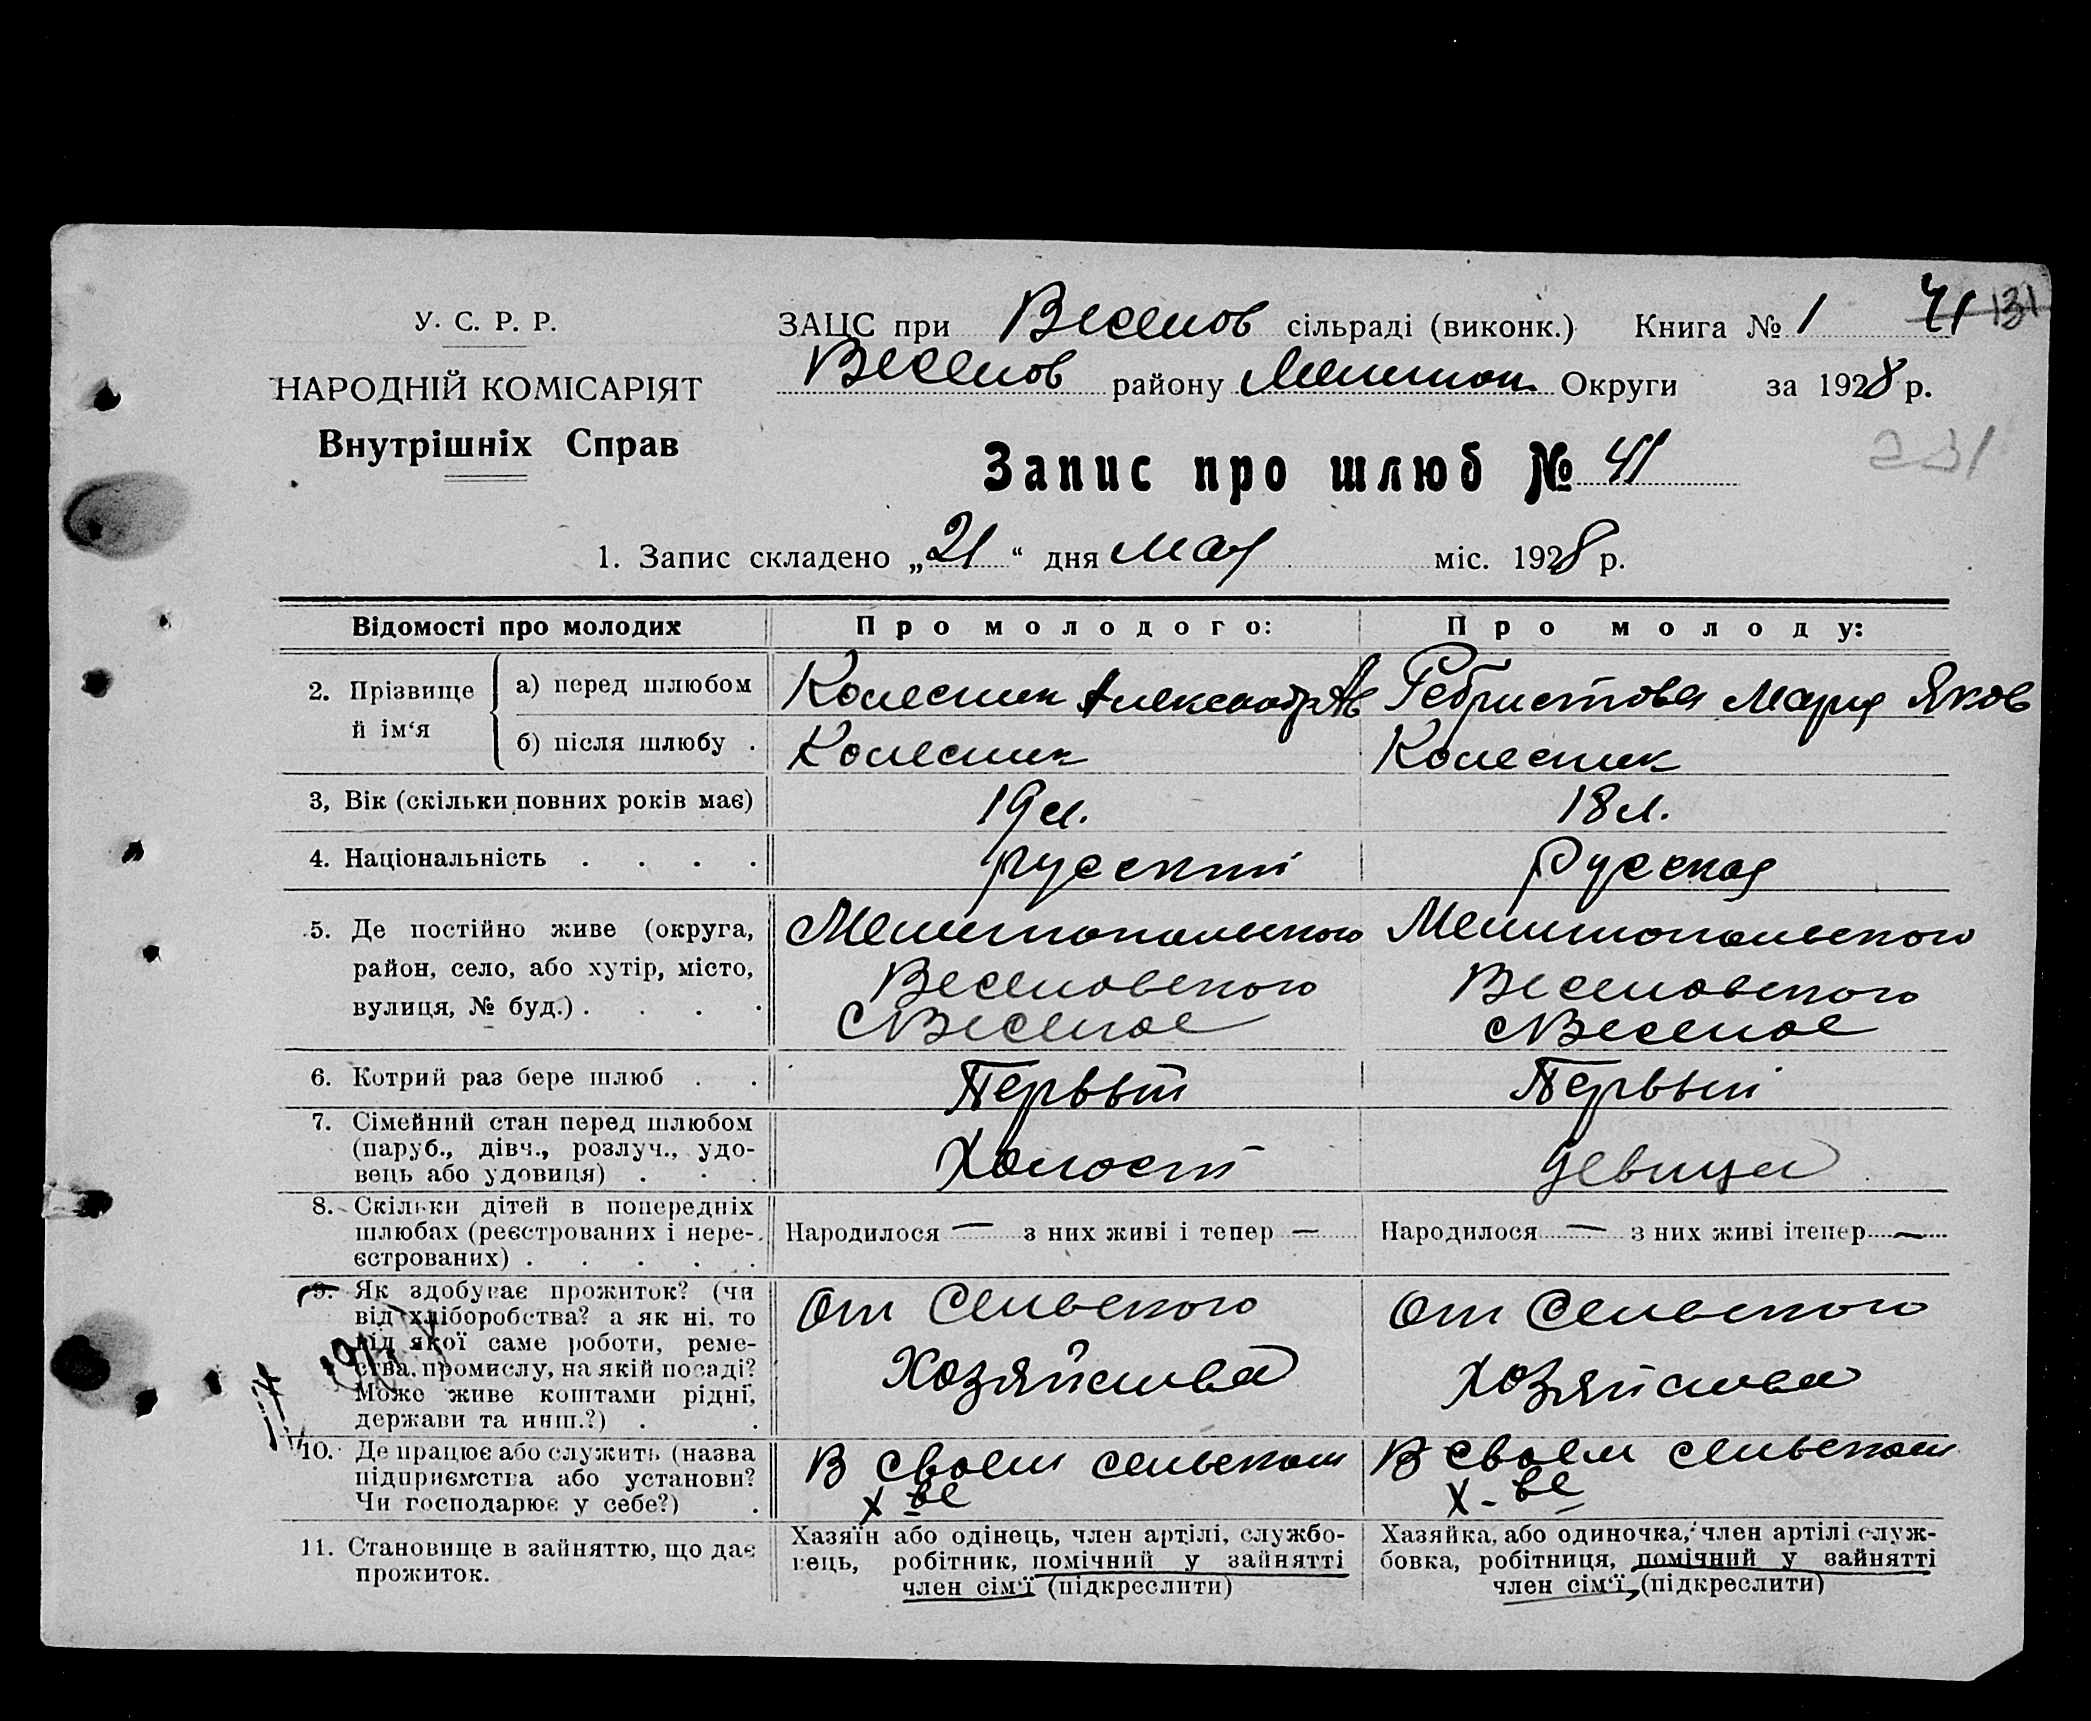 У. С. Р. Р.
НАРОДНІЙ КОМІСАРІЯТ
Внутрішніх Справ
ЗАЦС при Веселов сільраді (виконк.) Книга № 1 41 131
Веселов району Мелитоп. Округи за 1928 р.
231
Запис про шлюб № 41
1. Запис складено „21“ дня мая міс. 1928 р.
Відомості про молодих
Про молодого:
Про молоду:
2. Прізвище й ім‘я
а) перед шлюбом
Колесник Александр Ав
Ребристова Мария Яков
б) після шлюбу .
Колесник
Колесник
3, Вік (скільки повних років має)
19 л.
18 л.
4. Національність . . . .
русский
Русская
5. Де постійно живе (округа,
район, село, або хутір, місто,
вулиця, № буд.) . . . .
Мелитопольского
Веселовского
с Веселое
Мелитопольского
Веселовского
с Веселое
6. Котрий раз бере шлюб . .
Первый
Первый
7. Сімейний стан перед шлюбом
(паруб., дівч., розлуч., удо-
вець або удовиця) . . .
Холост
девица
8. Скільки дітей в попередніх
шлюбах (реєстрованих і нере-
єстрованих) . . . . .
Народилося — з них живі і тепер —
Народилося — з них живі ітепер —
9. Як здобуває прожиток? (чи
від хліборобства? а як ні, то
від якої саме роботи, реме-
ства, промислу, на якій посаді?
Може живе коштами рідні,
держави та инш.?) . .
От Сельского
Хозяйства
От Сельского
Хозяйства
10. Де працює або служить (назва
підприємства або установи?
Чи господарює у себе?) .
В своем сельском
х-ве
В своем сельском
х-ве
11. Становище в зайняттю, що дає
прожиток.
Хазяїн або одінець, член артілі, службо-
вець, робітник, помічний у зайнятті
член сім‘ї (підкреслити)
Хазяйка, або одиночка, член артілі служ-
бовка, робітниця, помічний у зайнятті
член сім‘ї, (підкреслити)